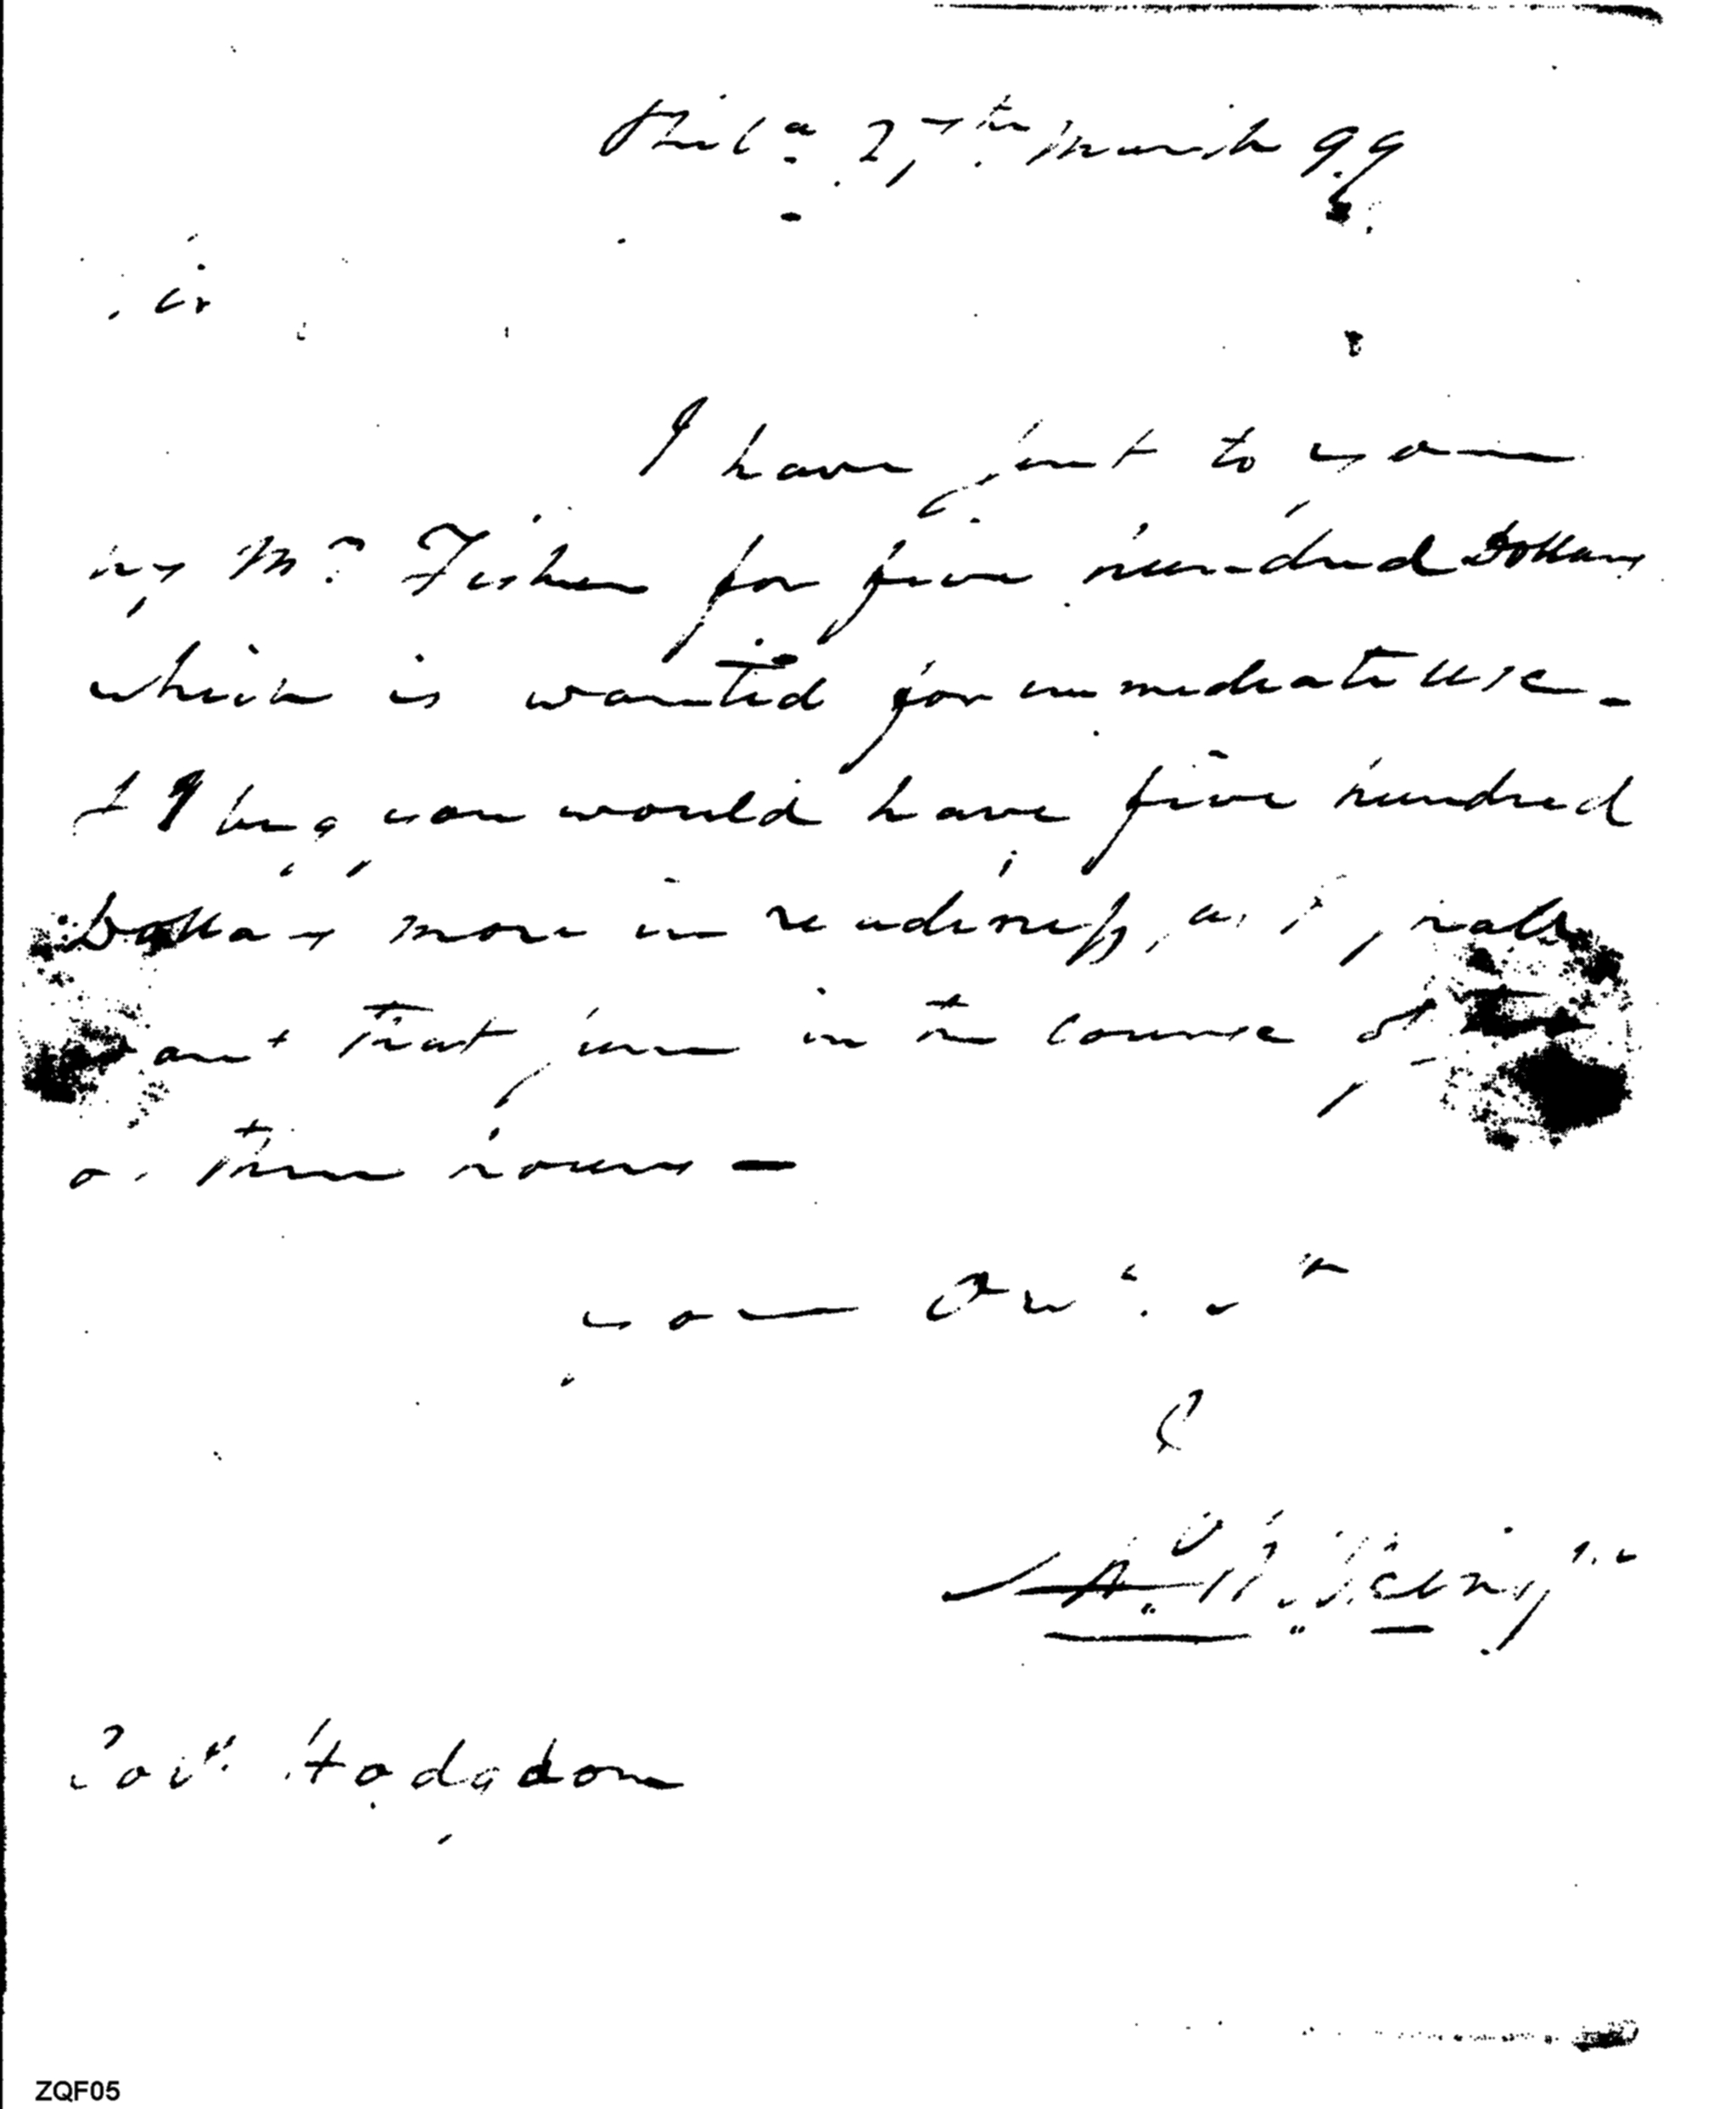 Phila. 27th March 99
Sir
I have sent to you
by Mr. Fisher for five hundred Dollars
which is wanted for immediate use -
& I beg you would have five hundred
Dollars more in readiness, as I shall
want that sum in the course of two
or three hours -
your Obt
Coll. Hodgdon
ZQF05